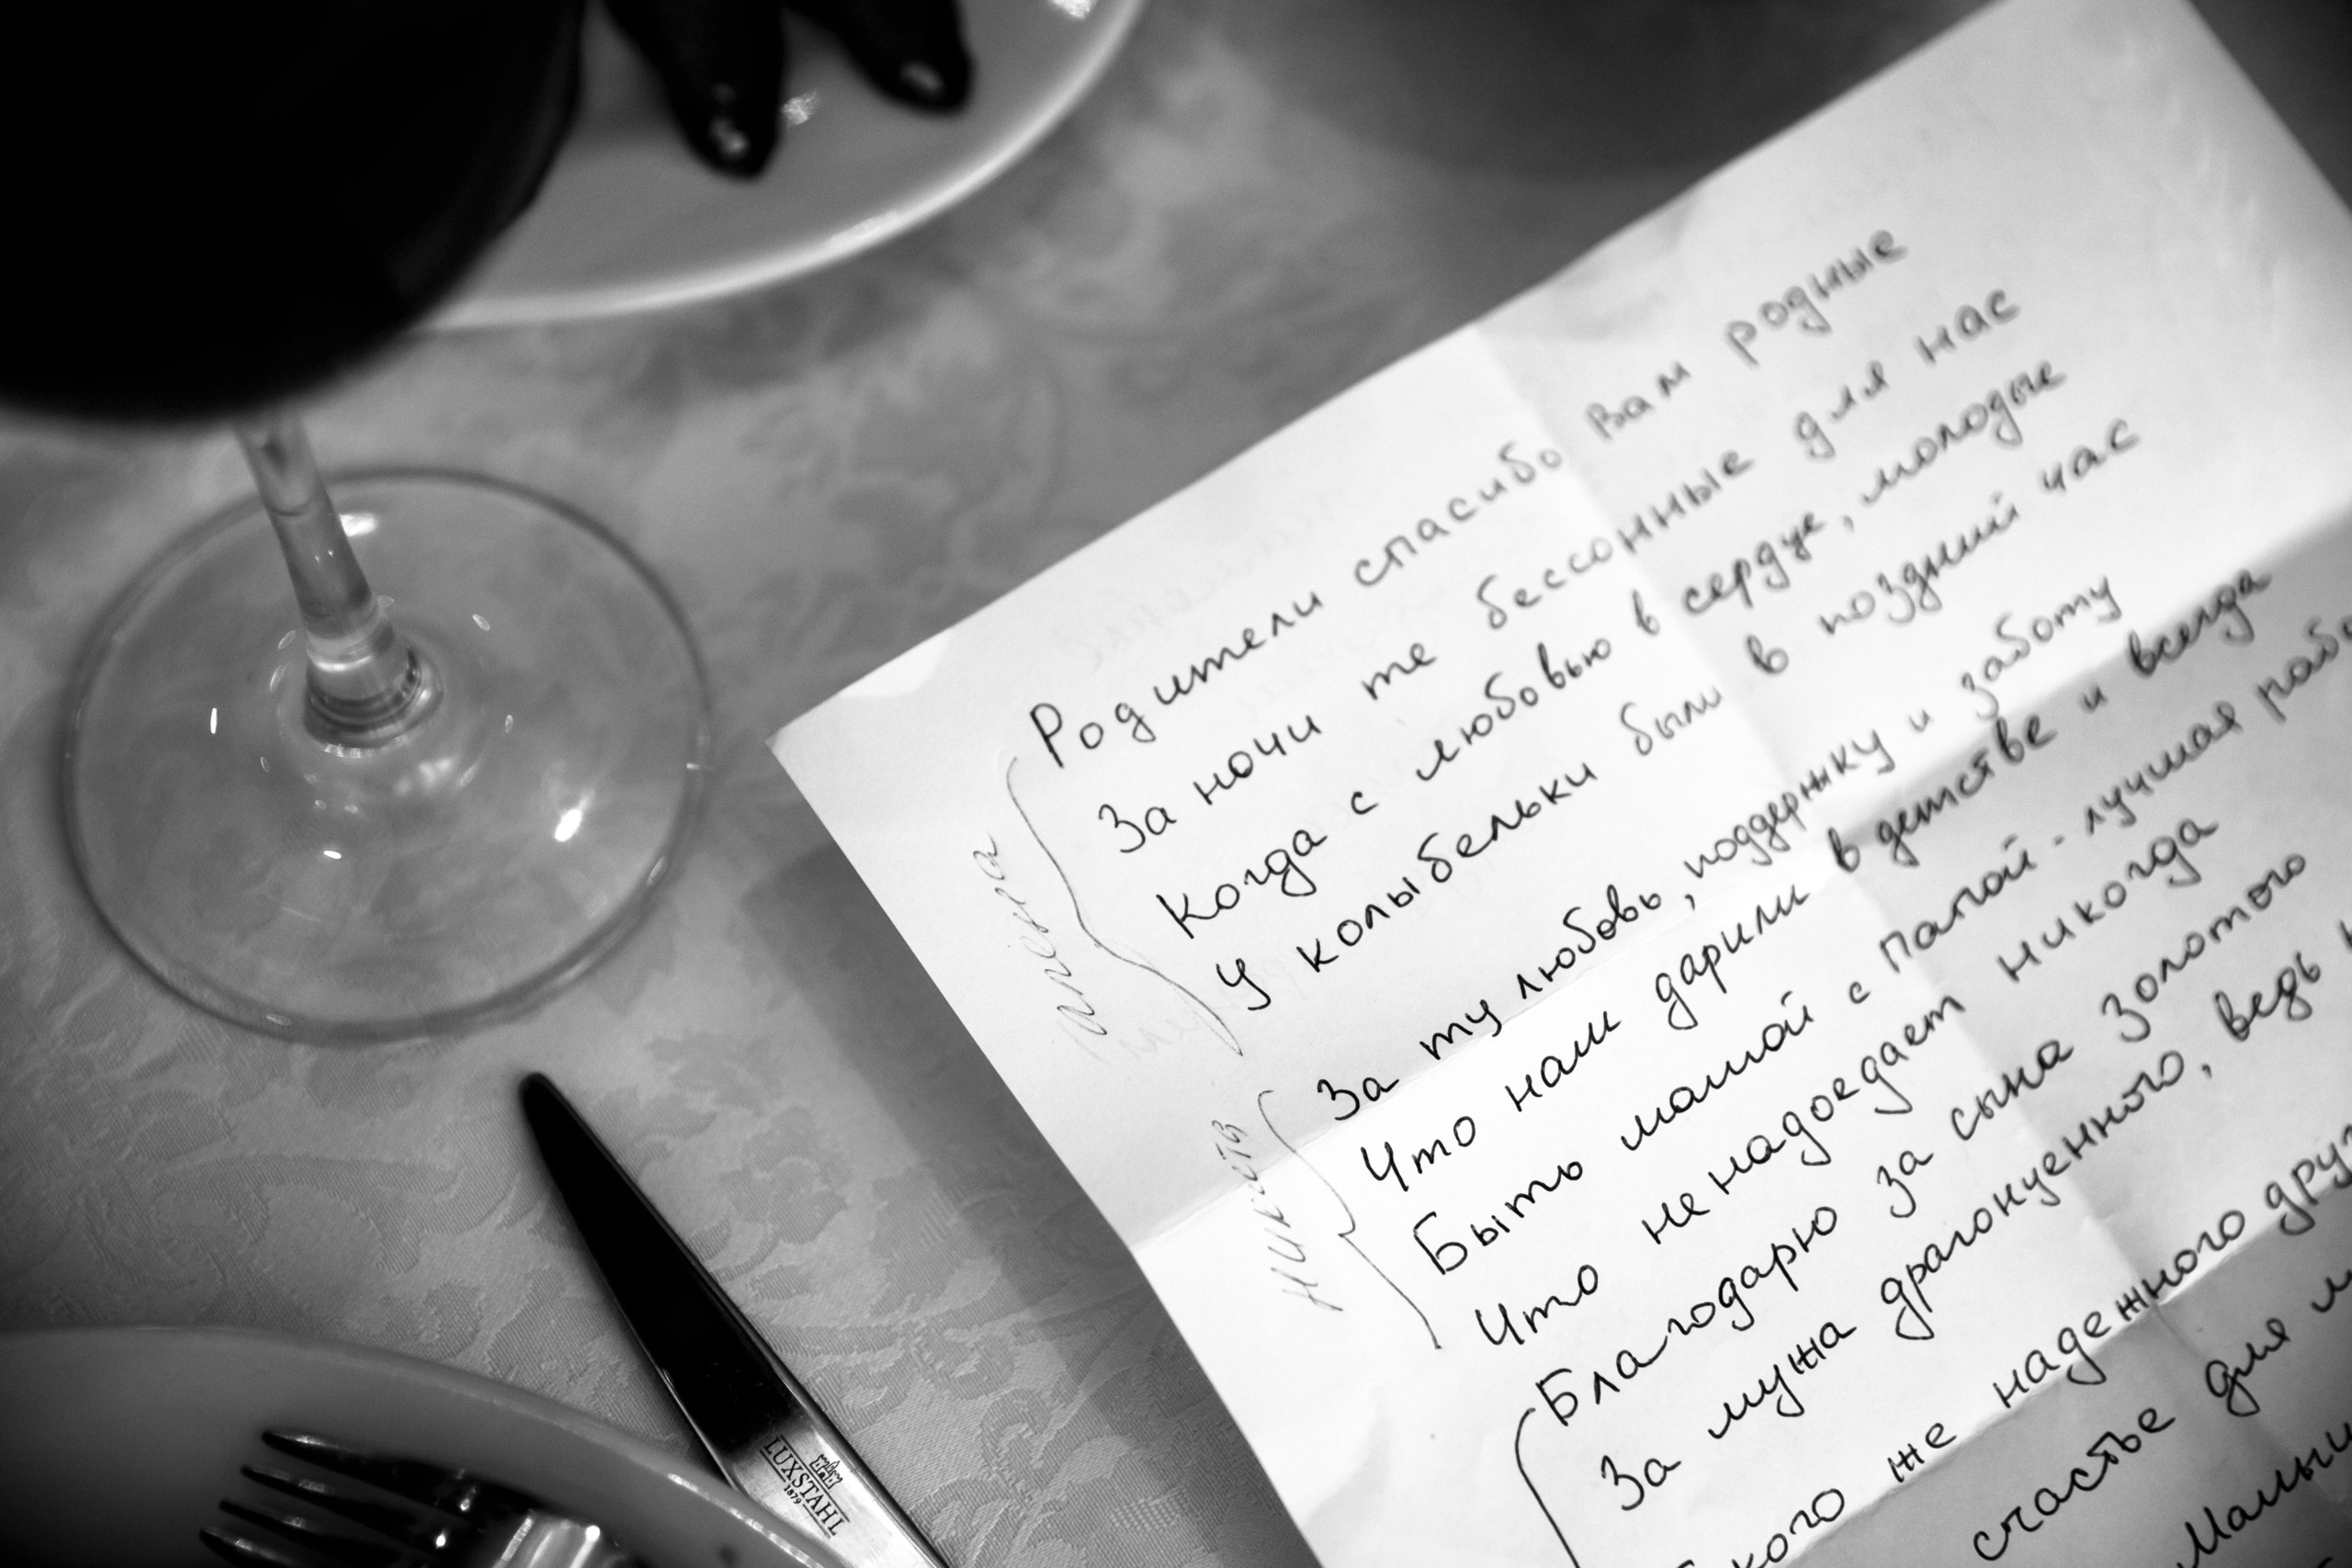 Родители спасибо вам родные
За ночи те бессонные для нас
Когда с любовью в сердце, молодые
У колыбельки были в поздний час
Алёна
За ту любовь, поддержку и заботу
Что нам дарили в детстве и всегда
Быть мамой с папой - лучшая
Что не надоедает никогда
Никита
Благодарю за сына золотого
За мужа драгоценного, ведь
же надежного
счастье для
LUXSTAHL
1879